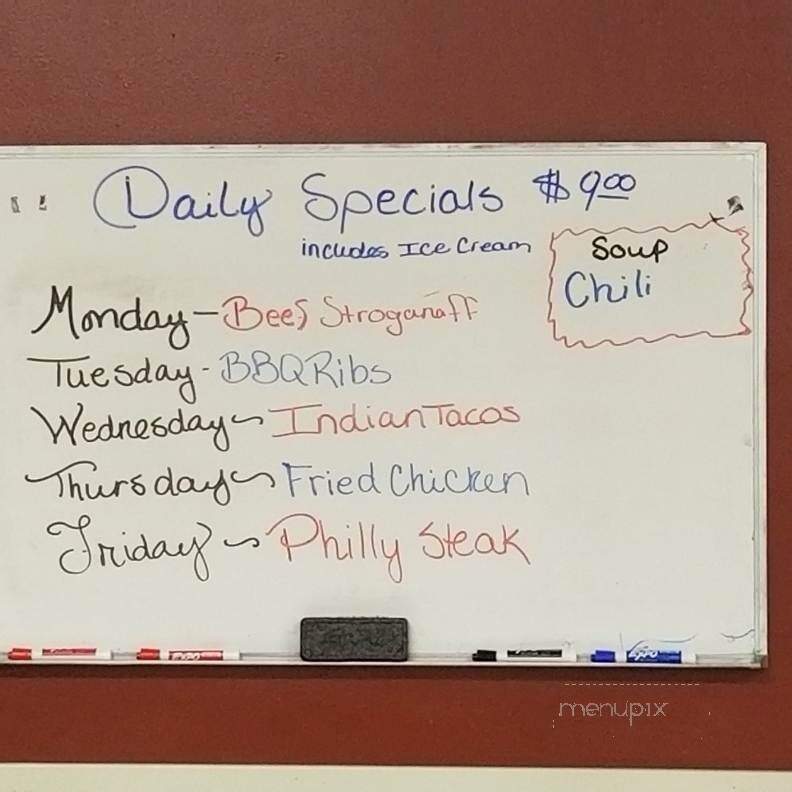 Daily Specials $9.00
includes Ice Cream
Soup
Chili
Monday - Beef Stroganaff
Tuesday - BBQ Ribs
Wednesday ~ Indian Tacos
Thursday ~ Fried Chicken
Friday ~ Philly Steak
EXPO
EXPO
menupix